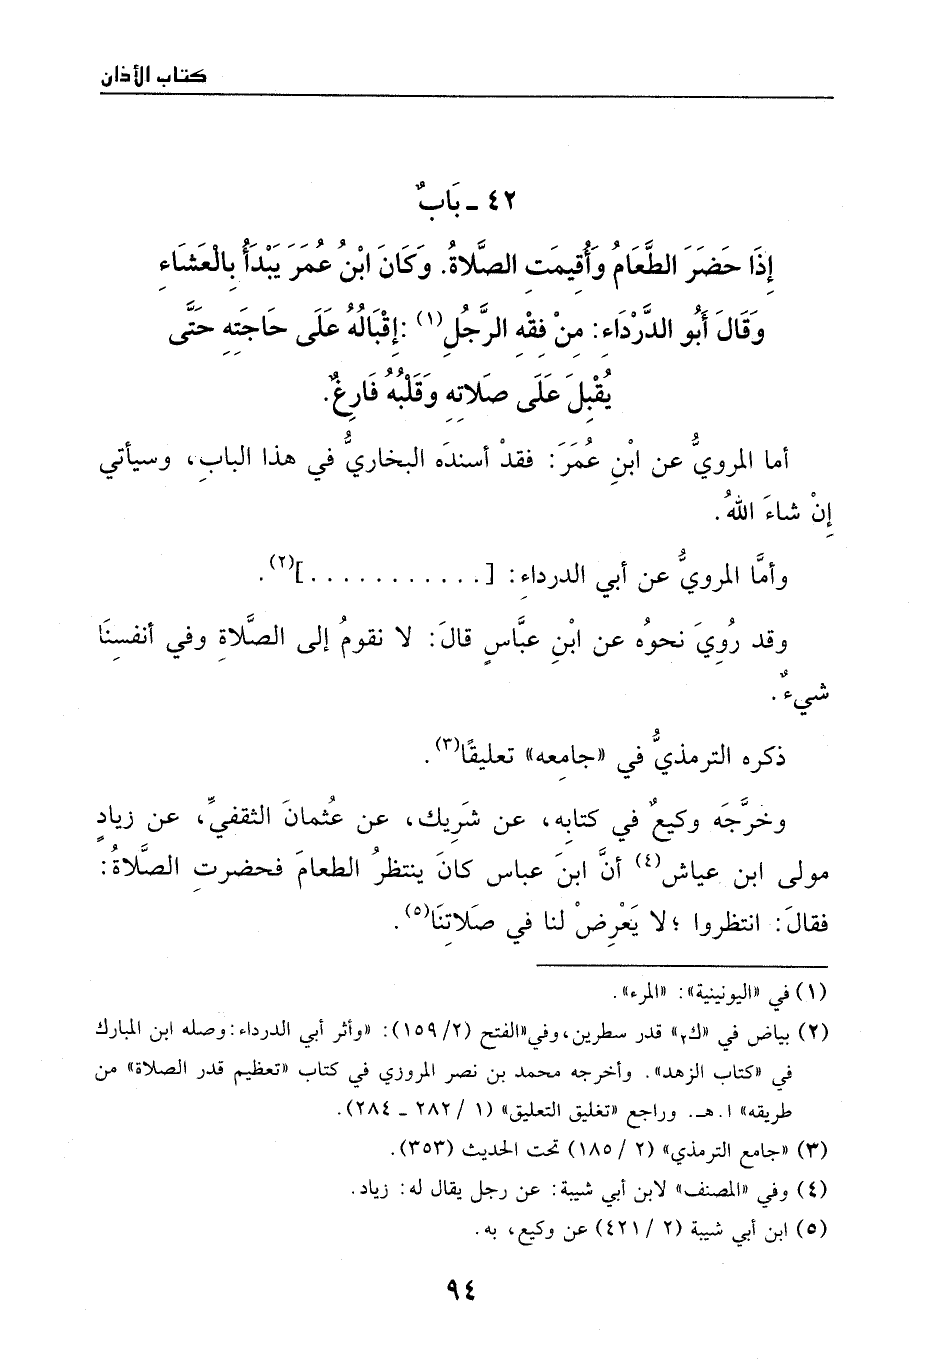 كتاب الأذان
٤٢ ـ بَابٌ
إِذَا حَضَرَ الطَّعَامُ وَأُقِيمَتِ الصَّلَاةُ. وَكَانَ ابْنُ عُمَرَ يَبْدَأُ بِالْعَشَاءِ
وَقَالَ أَبُو الدَّرْدَاءِ: مِنْ فِقْهِ الرَّجُلِ(١) :إِقْبَالُهُ عَلَى حَاجَتِهِ حَتَّى
يُقْبِلَ عَلَى صلَاتِهِ وَقَلْبُهُ فَارِغٌ.
أما المرويُّ عن ابْنِ عُمَرَ: فقدْ أسندَه البخاريُّ في هذا البابِ، وسيأتي
إنْ شاءَ اللهُ.
وأمَّا المرويُّ عن أبي الدرداءِ: [. . . . . . . . . . .](٢).
وقد رُوِيَ نحوُه عن ابْنِ عبَّاسٍ قالَ: لا نقومُ إلى الصَّلاةِ وفي أنفسِنَا
شيءٌ.
ذكره الترمذيُّ في «جامعِه» تعليقًا(٣).
وخرَّجَه وكيعٌ في كتابِه، عن شَرِيك، عن عُثمانَ الثقفيِّ، عن زيادٍ
مولى ابن عياش(٤) أنَّ ابنَ عباس كانَ ينتظرُ الطعامَ فحضرتِ الصَّلاةُ:
فقالَ: انتظروا ؛لا يَعْرِضْ لنا في صَلاتِنَا(٥).
(١) في «اليونينية»: «المرء».
(٢) بياض في «ك٢» قدر سطرين،وفي«الفتح (٢/ ١٥٩): «وأثر أبي الدرداء:وصله ابن المبارك
في «كتاب الزهد». وأخرجه محمد بن نصر المروزي في كتاب «تعظيم قدر الصلاة» من
طريقه» ا.هـ. وراجع «تغليق التعليق» (١ / ٢٨٢ ـ ٢٨٤).
(٣) «جامع الترمذي» (٢ / ١٨٥) تحت الحديث (٣٥٣).
(٤) وفي «المصنف» لابن أبي شيبة: عن رجل يقال له: زياد.
(٥) ابن أبي شيبة (٢ / ٤٢١) عن وكيع، به.
٩٤